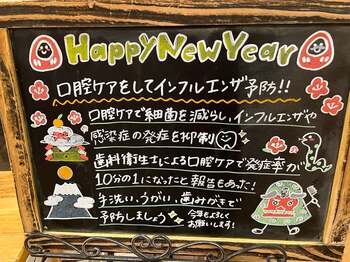 Happy New Year
口腔ケアをしてインフルエンザ予防!!
口腔ケアで細菌を減らし、インフルエンザや
感染症の発症を抑制
歯科衛生士による口腔ケアで発症率が
10分の1になったと報告もあった!
手洗い、うがい、歯みがきで
予防しましょう
今年もよろしく
お願いします!